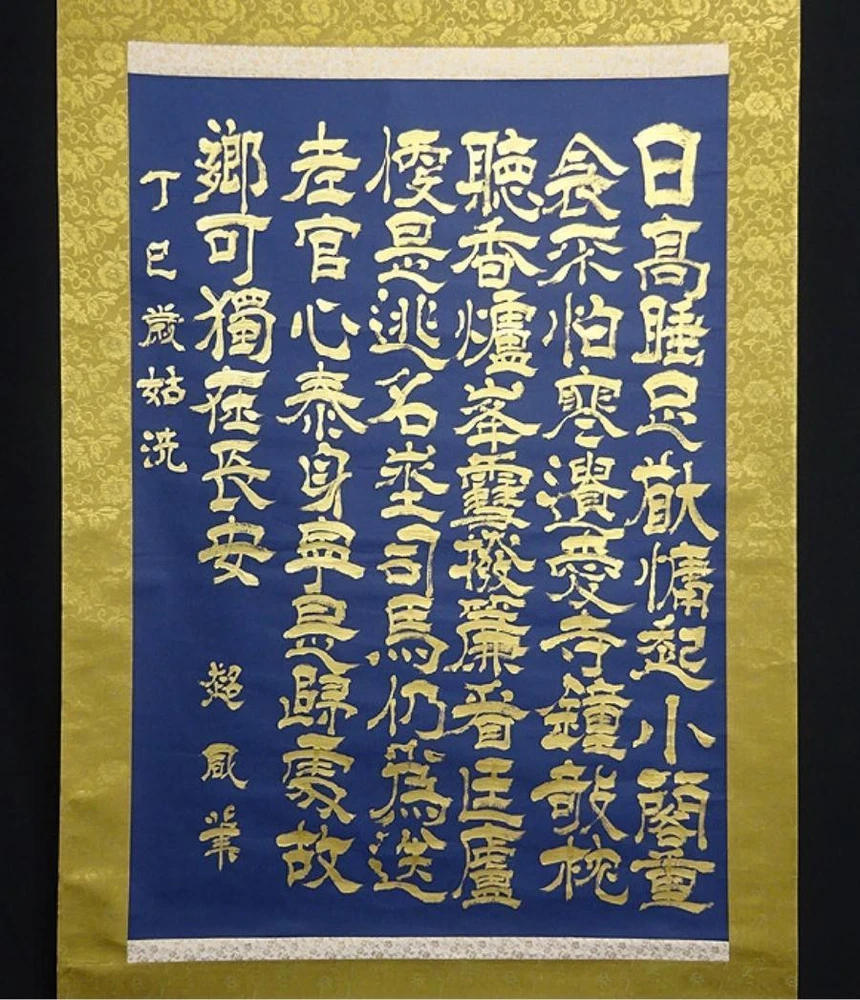 日高睡足猷慵起小閣重
衾不怕寒遺愛寺鐘敧枕
聽香爐峯雪撥簾看匡廬
便是逃名埊司馬仍為送
老官心泰身寧是歸處故
鄉可獨在長安
超風筆
丁巳歲姑洗